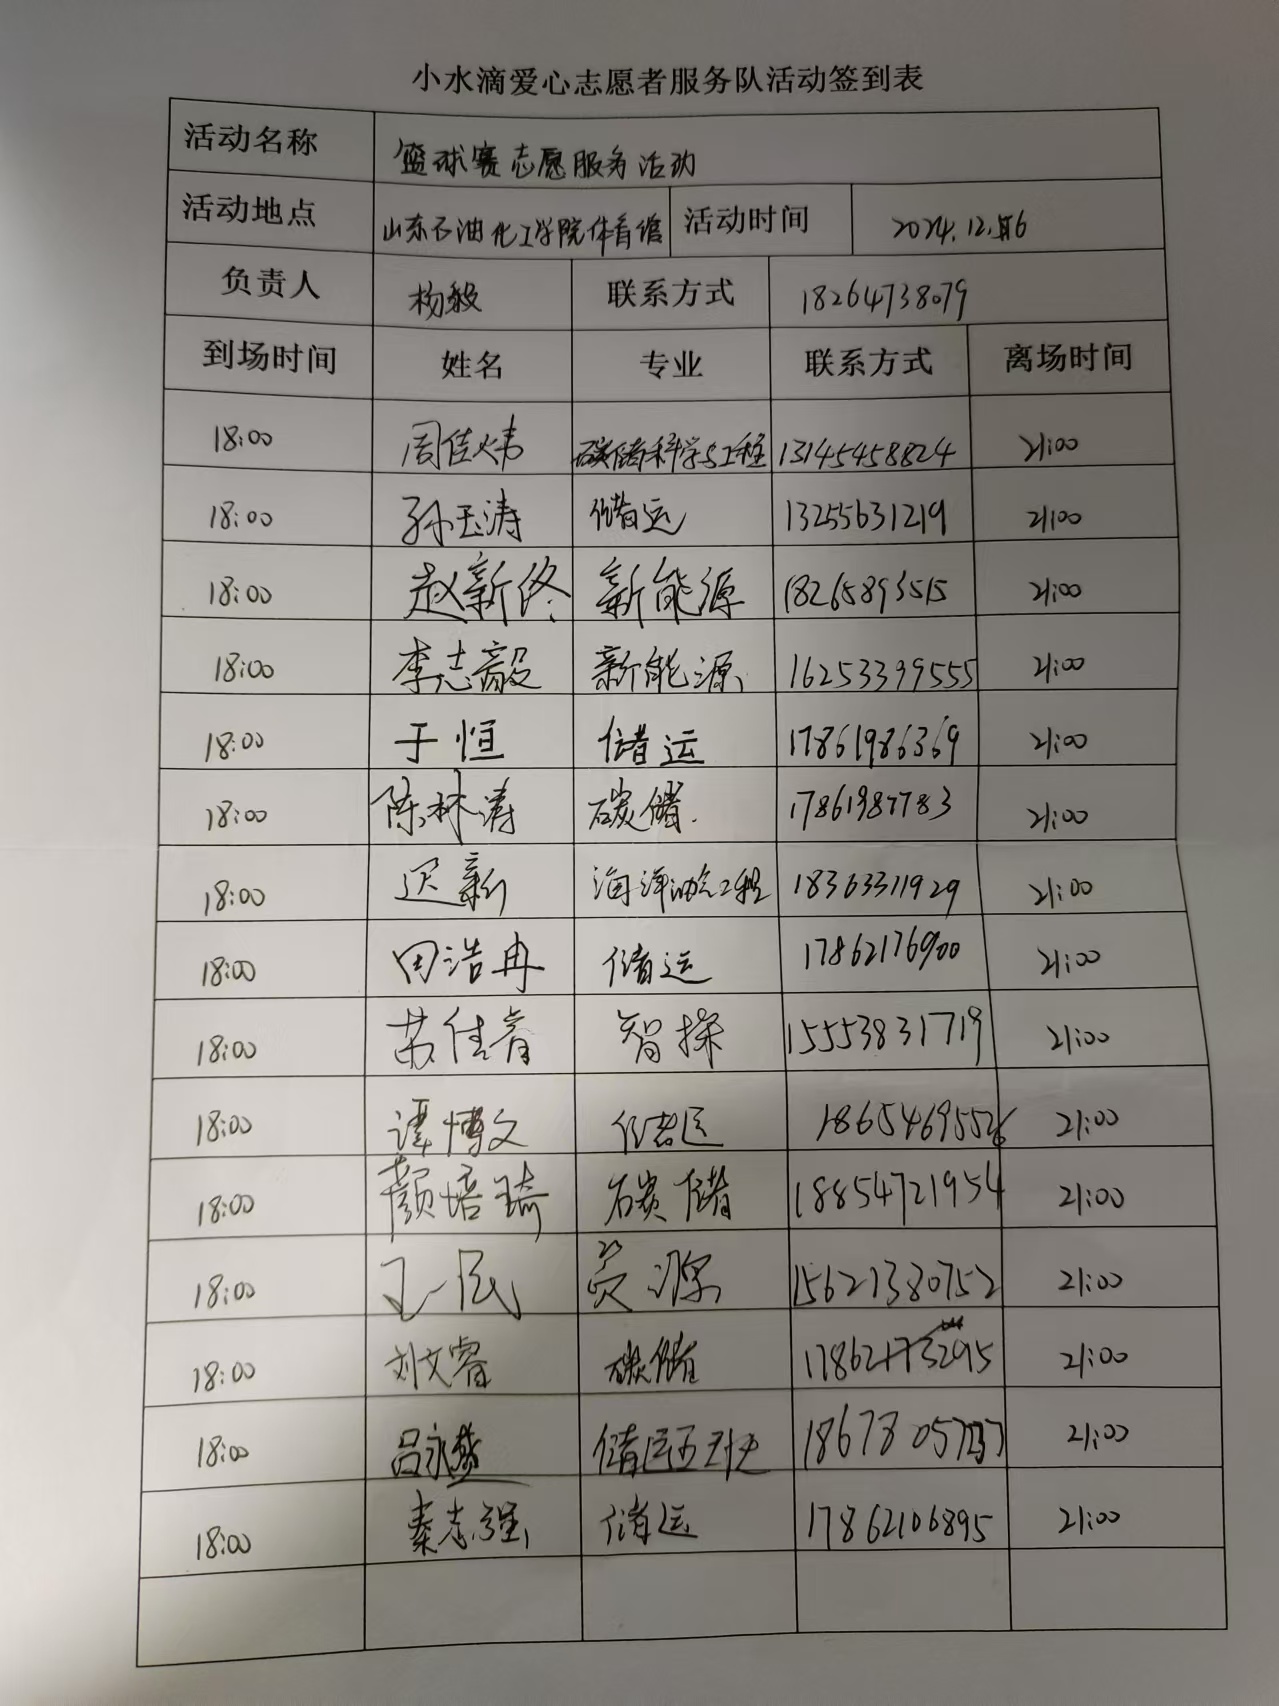 小水滴爱心志愿者服务队活动签到表
活动名称 篮球赛志愿服务活动
活动地点 山东石油化工学院体育馆 活动时间 2024.12.6
负责人 杨毅 联系方式 18264738079
到场时间 姓名 专业 联系方式 离场时间
18:00 周佳炜 碳储科学与工程 13145458824 21:00
18:00 孙玉涛 储运 13255631219 21:00
18:00 赵新佟 新能源 18265893515 21:00
18:00 李志毅 新能源 16253399555 21:00
18:00 于恒 储运 17861986369 21:00
18:00 陈林涛 碳储 17861987783 21:00
18:00 迟新 海洋油气工程 18363311929 21:00
18:00 田浩冉 储运 17862176900 21:00
18:00 苏佳睿 智探 15553831719 21:00
18:00 谭博文 储运 18654695526 21:00
18:00 颜培琦 碳储 18854721954 21:00
18:00 王一民 资源 15621380752 21:00
18:00 刘文睿 碳储 21:00
18:00 吕永燊 储运五班 21:00
18:00 秦志强 储运 17862106895 21:00